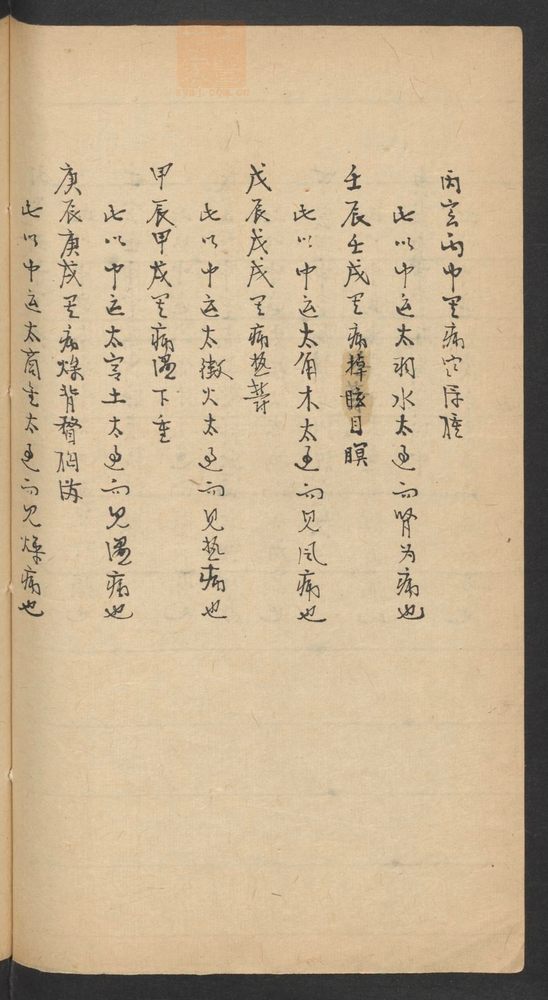 丙寅丙申其病寒浮腫
此以中运太羽水太过而肾为病也
壬辰壬戌其病掉眩目瞑
此以中运太角木太过而见风病也
戊辰戊戌其病热郁
此以中运太徵火太过而见热病也
甲辰甲戌其病湿下重
此以中运太宫土太过而见湿病也
庚辰庚戌其病燥背瞀胸满
此以中运太商金太过而见燥病也